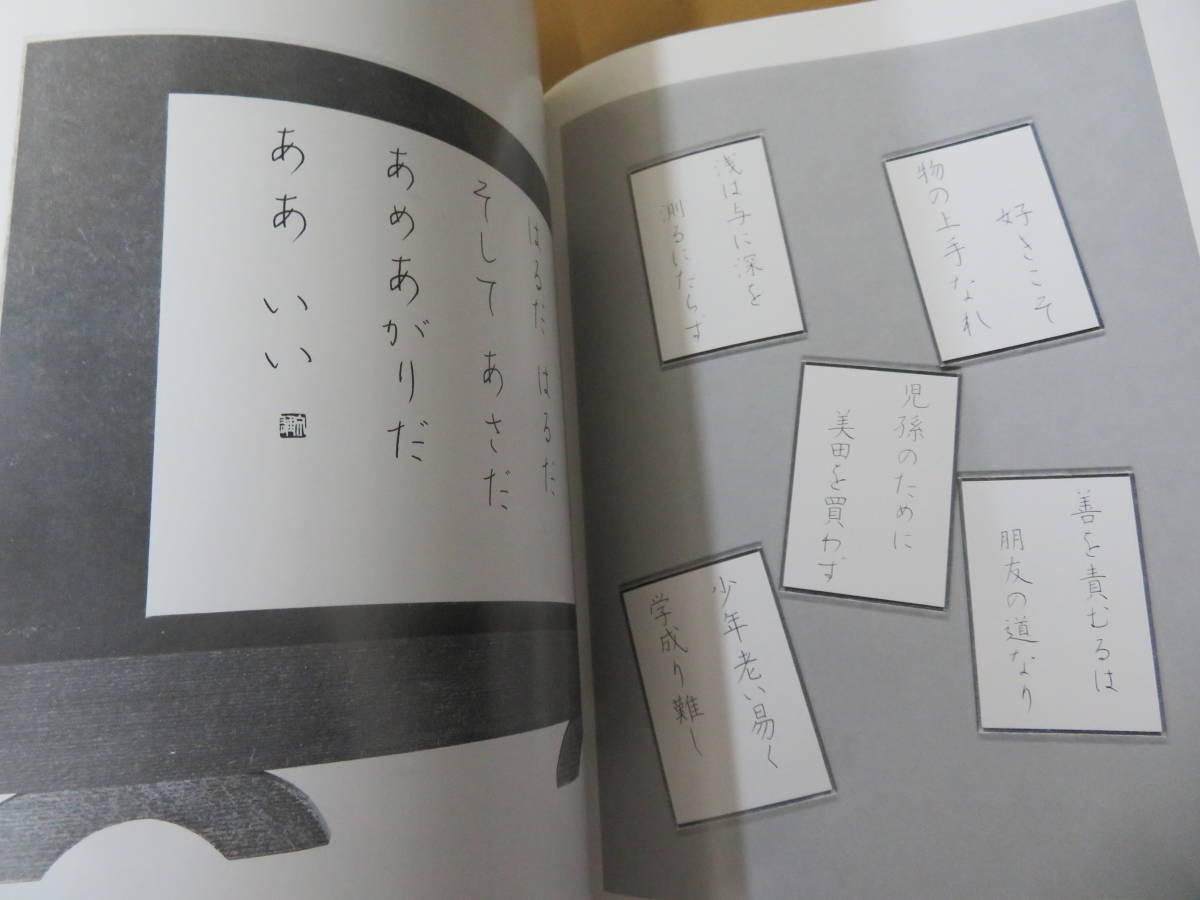 はるだ はるだ
そして あさだ
あめあがりだ
ああ いい
好きこそ
物の上手なれ
浅は与に深を
測るにたらず
児孫のために
美田を買わず
善を責むるは
朋友の道なり
少年老い易く
学成り難し